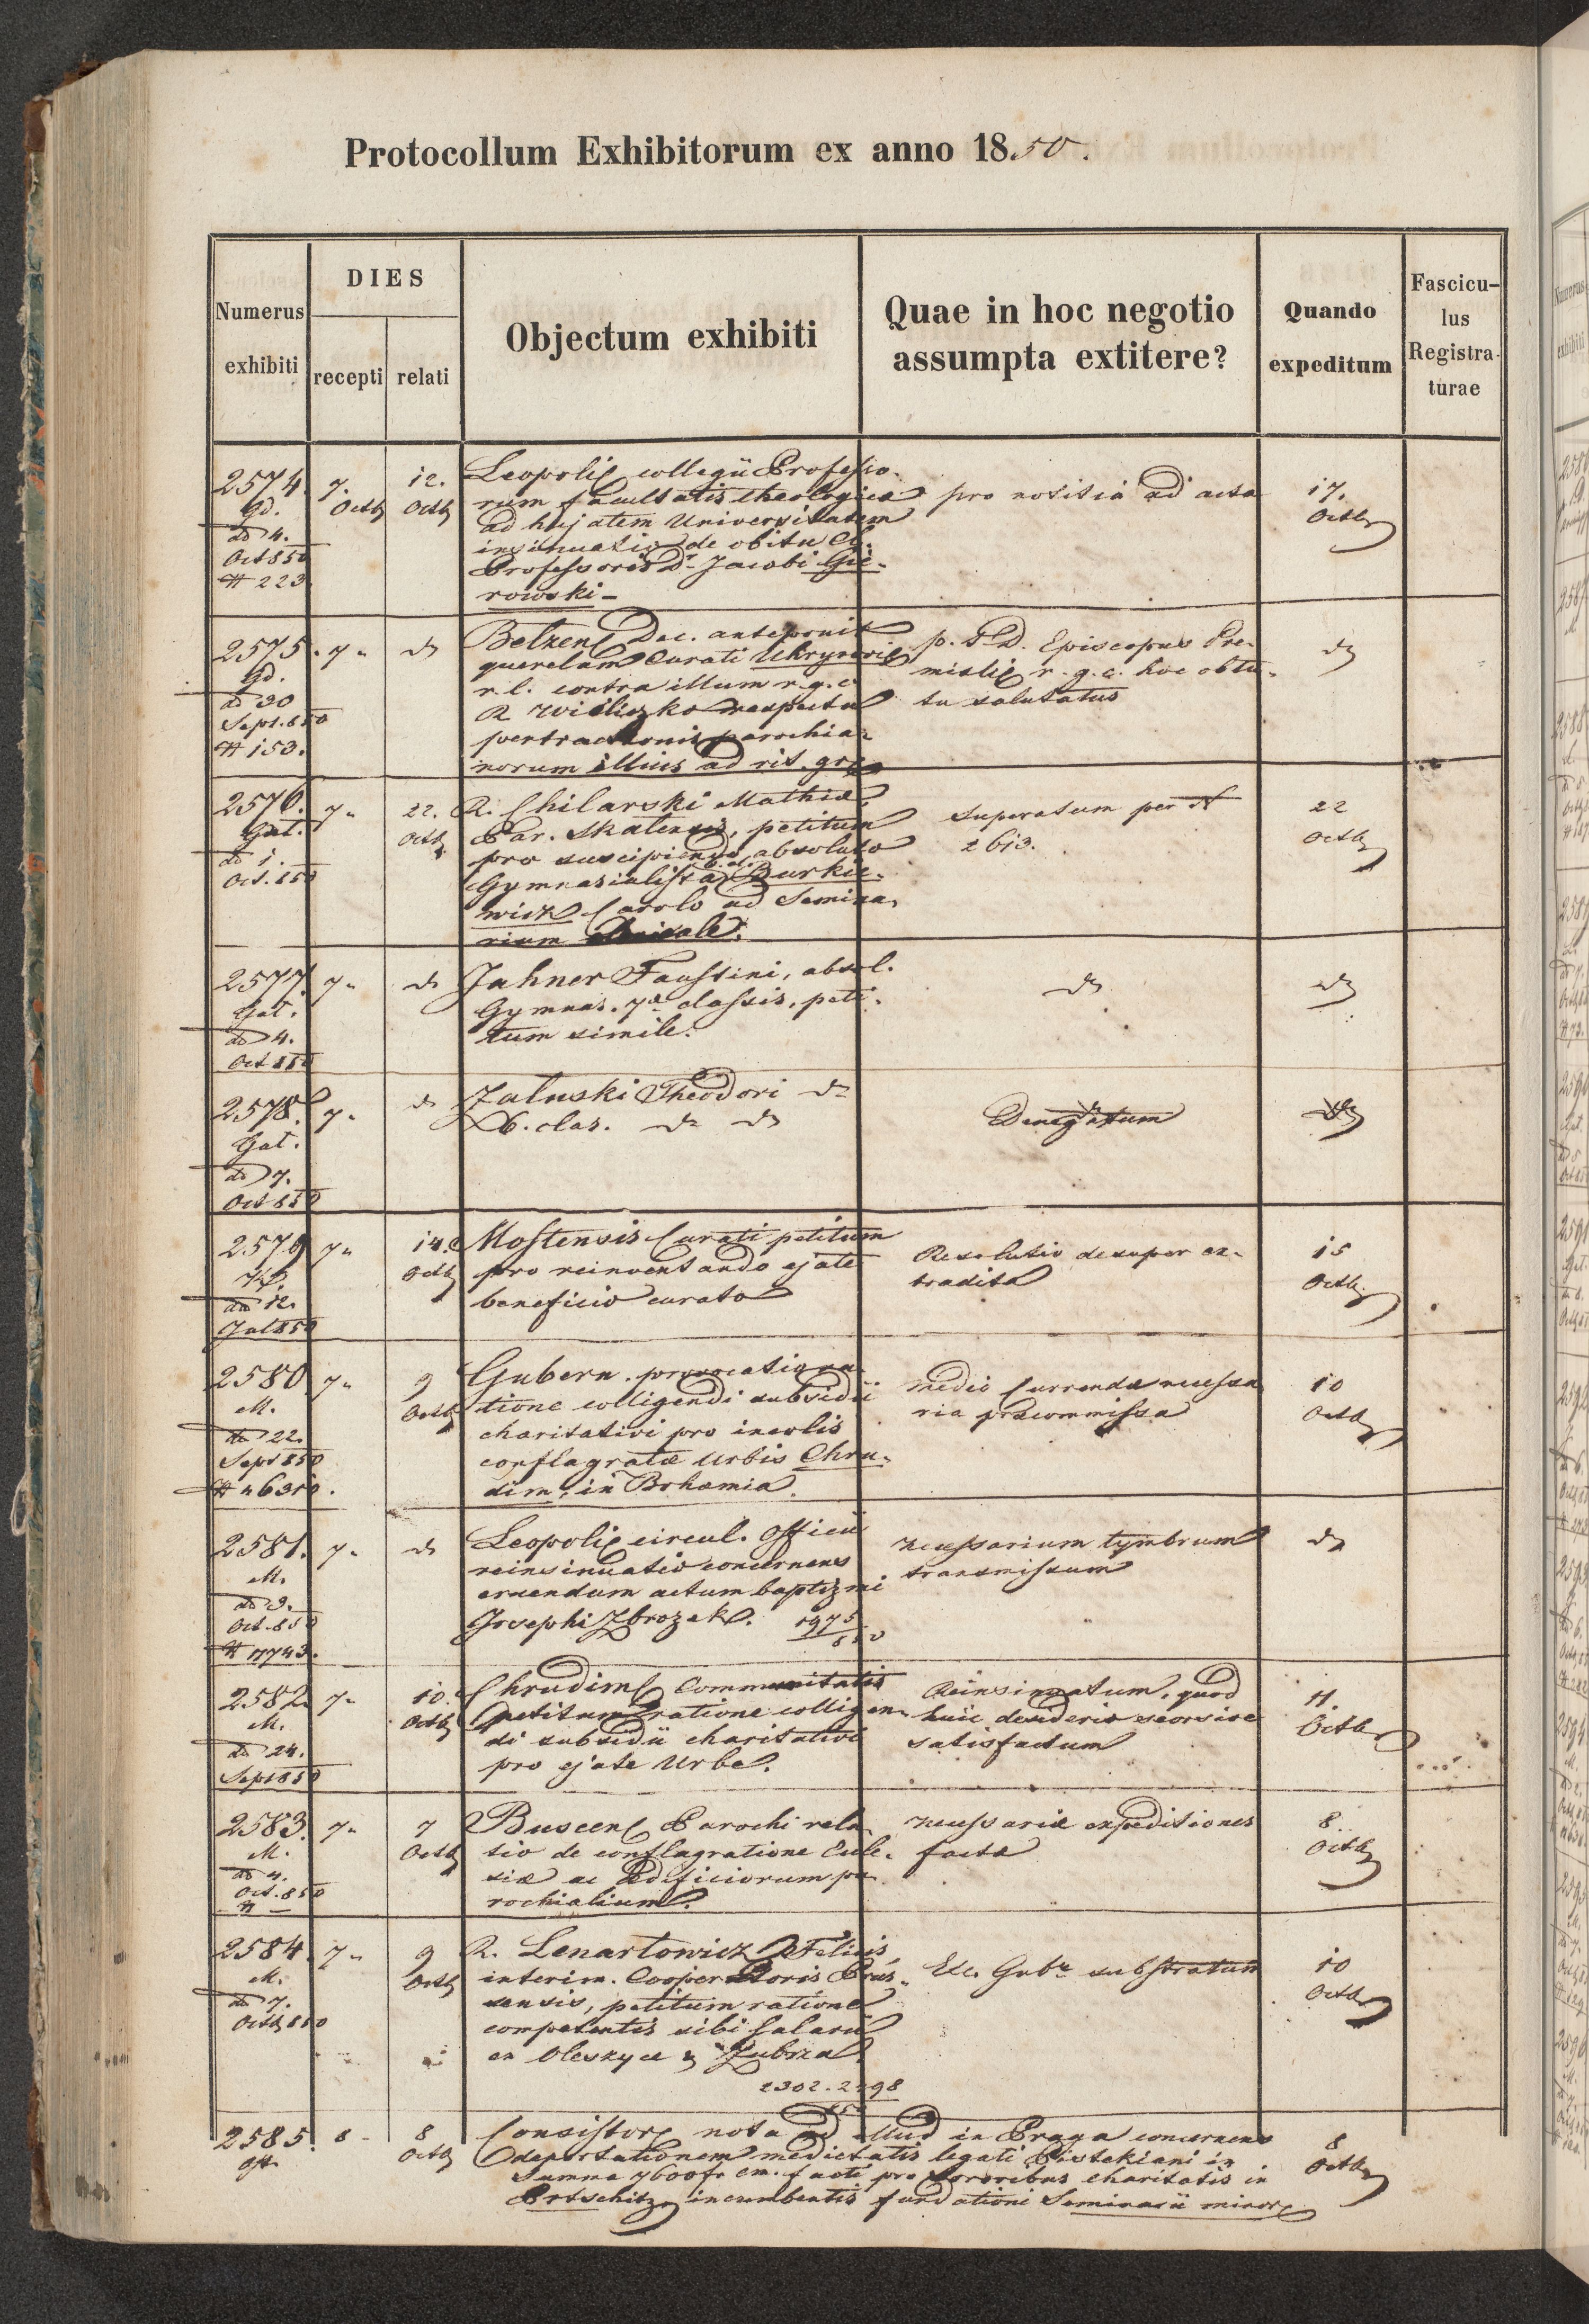 Protocollum Exhibitorum ex anno 1850.
Numerus exhibiti
DIES
recepti
relati
Objectum exhibiti
Quae in hoc negotio assumpta extitere?
Quando expeditum
Fascicu-
lus
Registra-
turae
2574.
Gd.
dd 4.
Oct 850
# 223
7.
Octb
12.
Octb
Leopolis collegii Professo-
rum facultatis theologica
ad hujatem Universitatem
insinuatio de obitu Cl.
Professoris Dr. Jacobi Gie-
rowski -
pro notitia ad acta
17.
Octb
2575.
Gd.
dd 30
Sept. 850
# 153.
7 "
do
Belzen Dec. anteponit
querelam Curati Uhrynovis
r. l. contra illum r. g. c.
R
respectu
pertractionis parochia-
norum illius ad rit. gr.
p. t. D. Episcopus Pre-
mislis r. g. c. hoc obtu-
tu salutatus
do
2576.
Gat.
dd 1.
Oct. 850
7 "
22.
Octb
R. Chilarski Mathiae,
Par. Skalensis, petitum
pro suscipiendo, absoluto
Gymnasialista Burkie-
wicz Carolo ad Semina-
rium
Superatum per #
2613.
22
Octb
2577.
Gat.
dd 4.
Oct 850
7 "
do
Jahner Faustini, absol.
Gymnas. 7æ classis, peti-
tum simile.
do
do
2578.
Gat.
dd 7.
Oct 850
7 "
do
Zaluski Theodori do
6. clas. do do
Denegatum
do
2579
dd 12.
Jul 850
7 "
14.
Octb
Mostensis Curati petitum
pro reinventando ejate
beneficio curato
Resolutio desuper ex-
tradita
15
Octb.
2580.
M.
dd 22.
Sept 850
# 46310.
7 "
9
Octb
Gubern. provocatio ra-
tione colligendi subsidii
charitativi pro incolis
conflagratae urbis Chru-
dim, in Bohemia.
medio Currendae necessa-
ria praecommissa
10
Octb
2581.
M.
dd 3.
Oct. 850
# 17743.
7 "
do
Leopolis circul. Officii
reinsinuatio concernens
eruendum actum baptizmi
Josephi Zbrozek. 1975
850
necessarium tymbrum
transmissum
do
2582
M.
dd 24.
Sept 850
7 "
10.
Octb
Chrudim Communitatis
petitum ratione colligen-
di subsidii charitativi
pro ejate Urbe.
Reinsinuatum, quod
huic desiderio seorsive
satisfactum
11.
Octb
2583.
M.
dd 4.
Oct. 850
# —
7 "
7
Octb
Buscen Parochi rela-
tio de conflagratione Eccle-
siae ac aedificiorum pa-
rochialium.
necessariae expeditiones
factae
8
Octb
2584.
M.
dd 7.
Octb 850
7 "
9
Octb
R. Lenartowicz Felicis,
interim. Cooperatoris Prus-
sensis, petitum ratione
competentis sibi Salarii
ex Oleszyce & Zubrza
2302. 2298
850
Exc. Gubr. substratum
10
Octb
2585.
8 -
8
Octb
Consistor nota ad illud in Praga concernens
deportationem medietatis legati Pistekiani in
Summa 7600 fr cm. facti pro Sororibus charitatis in
incumbentis fundationi Seminarii minor
8
Octb